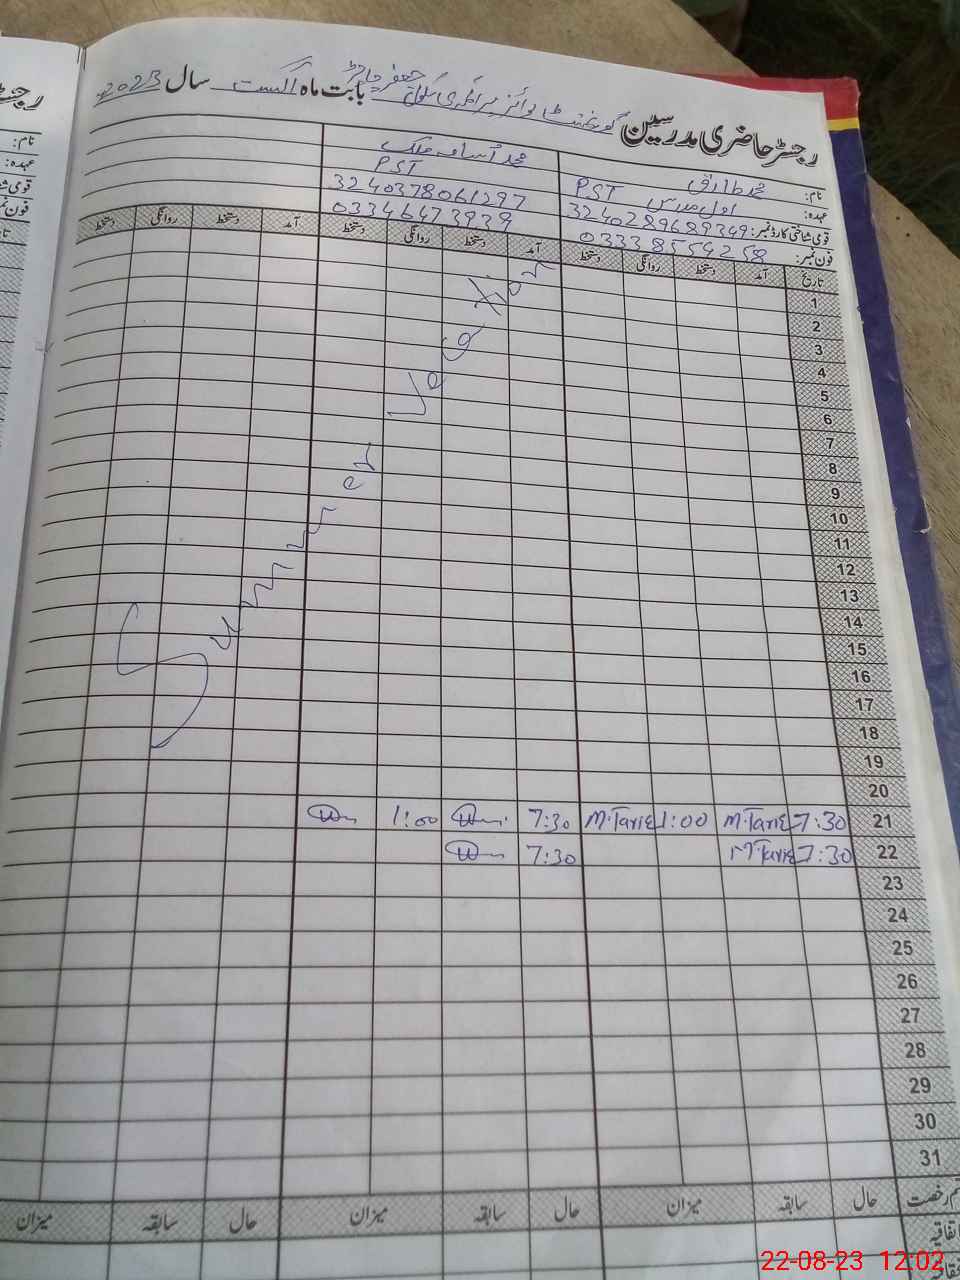 رجسٹر حاضری مدرسین گورنمنٹ بوائز پرائمری سکول جعفر چاچڑ بابت ماہ اگست سال 2023
نام: محمد طارق محمد اسامہ ملک
عہدہ: اول مدرس PST PST
قومی شناختی کارڈ نمبر: 3240289689349 3240378061297
فون نمبر: 03338554258 03346473939
تاریخ آمد دستخط روانگی دستخط آمد دستخط روانگی دستخط آمد دستخط روانگی دستخط
Summer Vacation
1
2
3
4
5
6
7
8
9
10
11
12
13
14
15
16
17
18
19
20
21 7:30 M.Tariq 1:00 M.Tariq 7:30 1:00
22 7:30 M.Tariq 7:30
23
24
25
26
27
28
29
30
31
قسم رخصت حال سابقہ میزان حال سابقہ میزان حال سابقہ میزان
اتفاقیہ
22-08-23 12:02